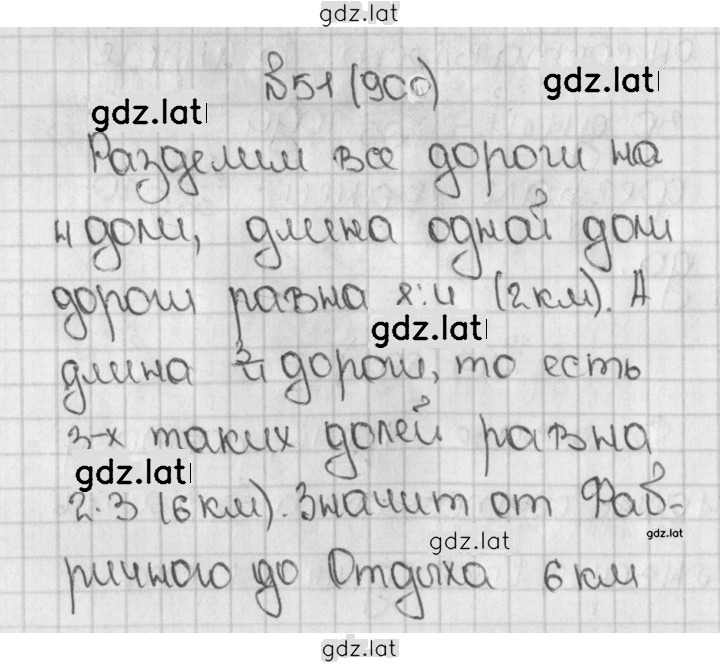 gdz.lat
№51 (900)
gdz.lat
gdz.lat
Разделим все дороги на
4 доли, длина одной доли
дороги равна 8:4 (2 км). А
gdz.lat
длина 3/4 дороги, то есть
3-х таких долей равна
gdz.lat
2·3 (6 км). Значит от Фаб-
gdz.lat
gdz.lat
ричного до Отдыха 6 км
gdz.lat